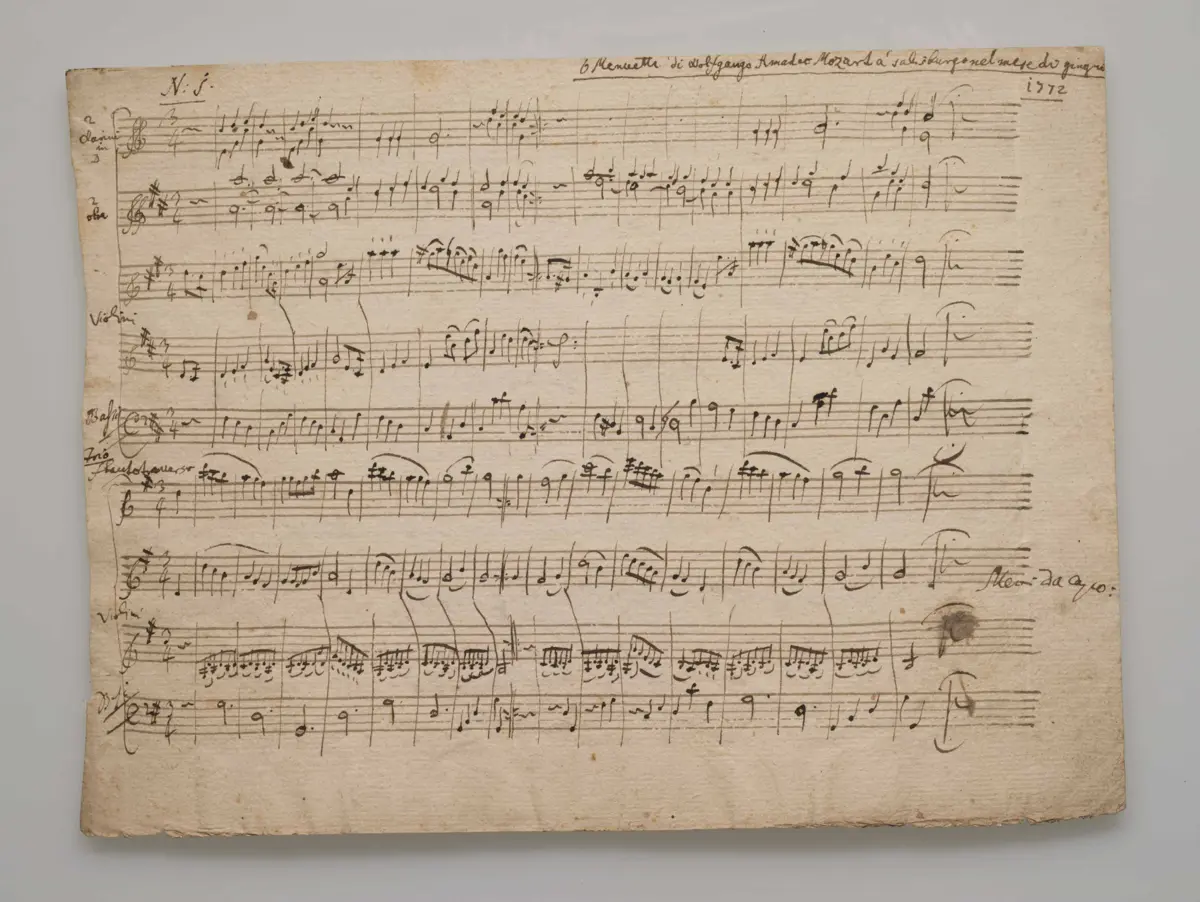 N: 1.
6 Menuetti di Wolfgango Amadeo Mozart à Salisburgo nel mese di giugno
1772
2
Clarini
in
D
2
oboe
3
4
3
4
3
4
Violini
3
4
Bassi
3
4
Trio
flauto traverso
3
4
3
4
Men: Da Capo:
Violini
3
4